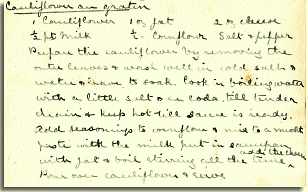 Cauliflower au gratin
Cauliflower 1 oz fat 2 oz cheese
½ pt milk ½ - Cornflour Salt & pepper
Prepare the cauliflower by removing the
outer leaves & wash well in cold salt &
water & leave to soak. Cook in boiling water
with a little salt & soda, till tender
drain & keep hot till sauce is ready.
Add seasonings to cornflour & mix to a smooth
paste with the milk put in saucepan
add the cheese
with fat & boil stirring all the time
Pour over cauliflower & serve